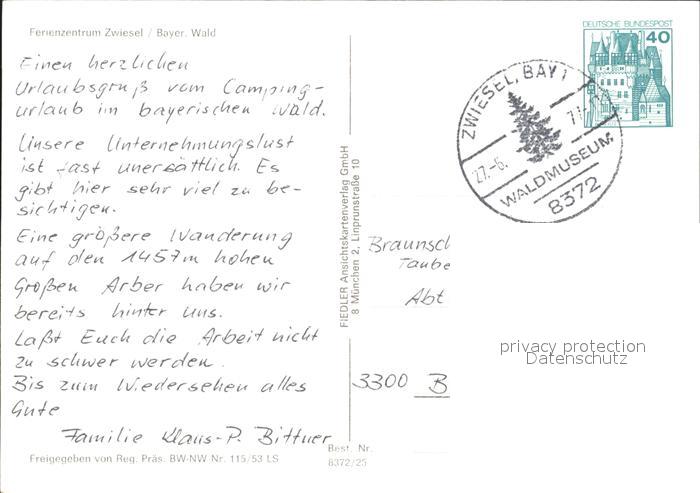 Ferienzentrum Zwiesel / Bayer. Wald
Einen herzlichen
Urlaubsgruß vom Camping-
urlaub im bayerischen Wald.
Unsere Unternehmungslust
ist fast unersättlich. Es
gibt hier sehr viel zu be-
sichtigen.
Eine größere Wanderung
auf den 1457m hohen
Großen Arber haben wir
bereits hinter uns.
Laßt Euch die Arbeit nicht
zu schwer werden.
Bis zum Wiedersehen alles
Gute
Familie Klaus-P. Bittner
Freigegeben von Reg. Präs. BW-NW Nr. 115/53 LS
Best. Nr.
8372/25
FIEDLER Ansichtskartenverlag GmbH
8 München 2, Linprunstraße 10
DEUTSCHE BUNDESPOST
40
ZWIESEL, BAY
27.-6.
WALDMUSEUM
8372
Braunsch
Taube
Abt
3300 B
privacy protection
Datenschutz